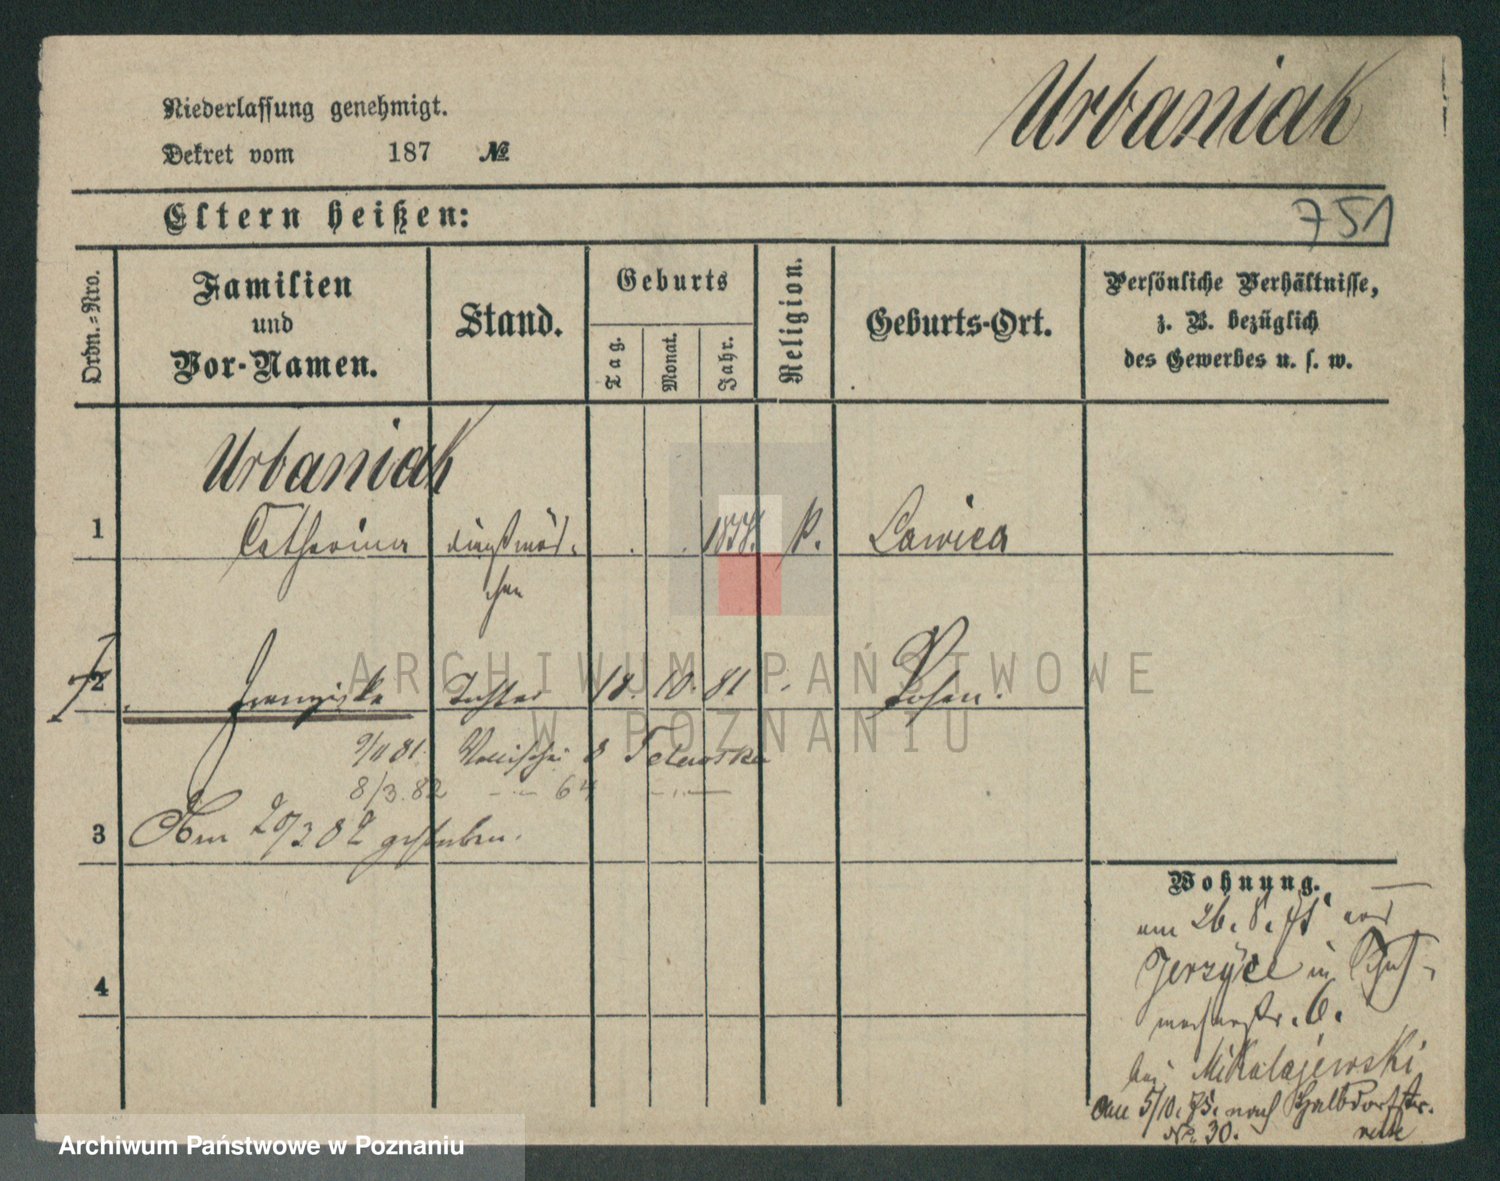 Urbaniak
Niederlassung genehmigt.
Dekret vom 187 №
Eltern heißen:
751
Ordn.-Nro.
Familien
und
Vor-Namen.
Stand.
Geburts
Tag.
Monat.
Jahr.
Religion.
Geburts-Ort.
Persönliche Verhältnisse,
z. B. bezüglich
des Gewerbes u. s. w.
Urbaniak
1 Catharina Dienstmäd- . . P. Lawica
chen
2 Franziska Tochter 18 10. 81 Posen.
9/11 81. 8
8/3. 82 - - 64 - " -
3 Am 20/3 82 gestorben.
4
Wohnung.
am 26. 8. aus
Jerzyce in Schuh-
macherstr. 6.
bei Mikolajewski
Am 5/10. 75. nach Halbdorfstr.
№ 30.
ARCHIWUM PAŃSTWOWE
W POZNANIU
Archiwum Państwowe w Poznaniu